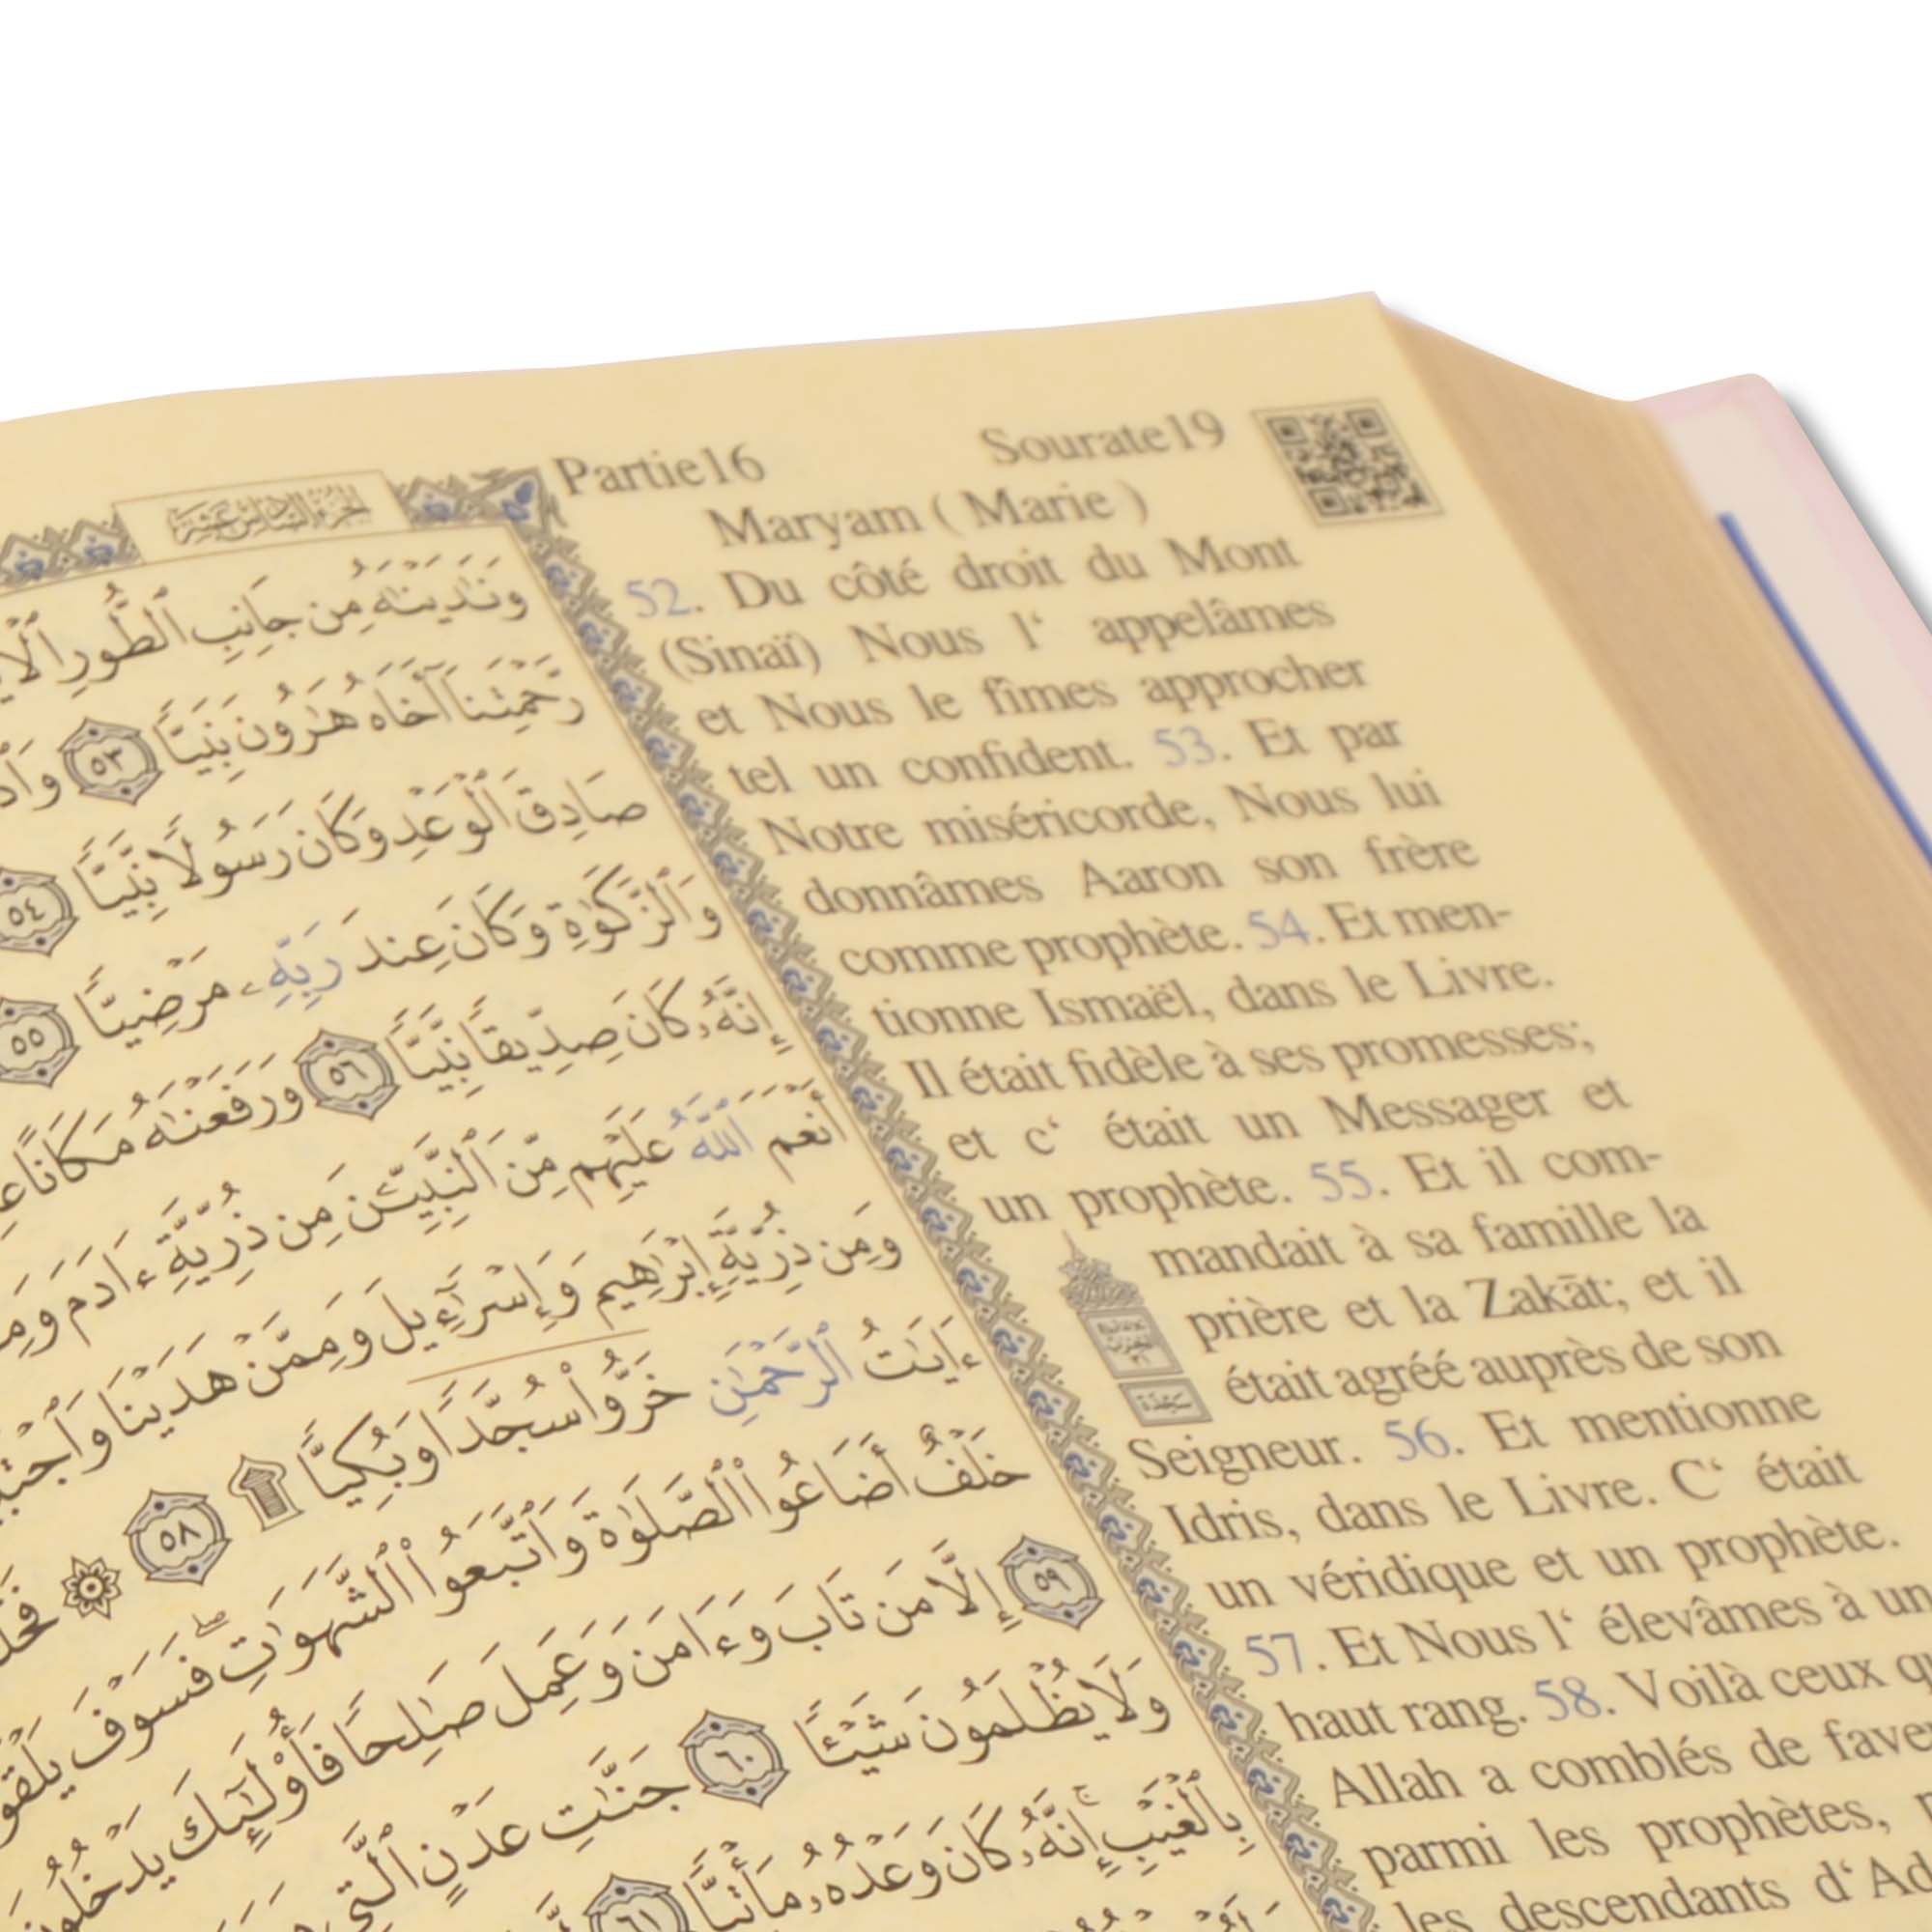 Partie16 Sourate19
Maryam ( Marie )
52. Du côté droit du Mont
(Sinaï) Nous l‘ appelâmes
et Nous le fîmes approcher
tel un confident. 53. Et par
Notre miséricorde, Nous lui
donnâmes Aaron son frère
comme prophète. 54. Et men-
tionne Ismaël, dans le Livre.
Il était fidèle à ses promesses;
et c‘ était un Messager et
un prophète. 55. Et il com-
mandait à sa famille la
prière et la Zakāt; et il
était agréé auprès de son
Seigneur. 56. Et mentionne
Idris, dans le Livre. C‘ était
un véridique et un prophète.
57. Et Nous l‘ élevâmes à un
haut rang. 58. Voilà ceux
Allah a comblés de
parmi les prophètes,
les descendants
سجدة
الجزء السادس عشر
وَنَـٰدَيْنَـٰهُ مِن جَانِبِ ٱلطُّورِ
رَّحْمَتِنَآ أَخَاهُ هَـٰرُونَ نَبِيًّا ٥٣
صَادِقَ ٱلْوَعْدِ وَكَانَ رَسُولًا نَّبِيًّا ٥٤
وَٱلزَّكَوٰةِ وَكَانَ عِندَ رَبِّهِۦ مَرْضِيًّا ٥٥
إِنَّهُۥ كَانَ صِدِّيقًا نَّبِيًّا ٥٦ وَرَفَعْنَـٰهُ مَكَانًا
أَنْعَمَ ٱللَّهُ عَلَيْهِم مِّنَ ٱلنَّبِيِّـۧنَ مِن ذُرِّيَّةِ ءَادَمَ
وَمِن ذُرِّيَّةِ إِبْرَٰهِيمَ وَإِسْرَٰٓءِيلَ وَمِمَّنْ هَدَيْنَا
ءَايَـٰتُ ٱلرَّحْمَـٰنِ خَرُّوا۟ سُجَّدًا وَبُكِيًّا ۩ ٥٨ ۞
خَلْفٌ أَضَاعُوا۟ ٱلصَّلَوٰةَ وَٱتَّبَعُوا۟ ٱلشَّهَوَٰتِ ۖ فَسَوْفَ
٥٩ إِلَّا مَن تَابَ وَءَامَنَ وَعَمِلَ صَـٰلِحًا فَأُو۟لَـٰٓئِكَ
وَلَا يُظْلَمُونَ شَيْـًٔا ٦٠ جَنَّـٰتِ عَدْنٍ ٱلَّتِى
بِٱلْغَيْبِ ۚ إِنَّهُۥ كَانَ وَعْدُهُۥ مَأْتِيًّا ٦١